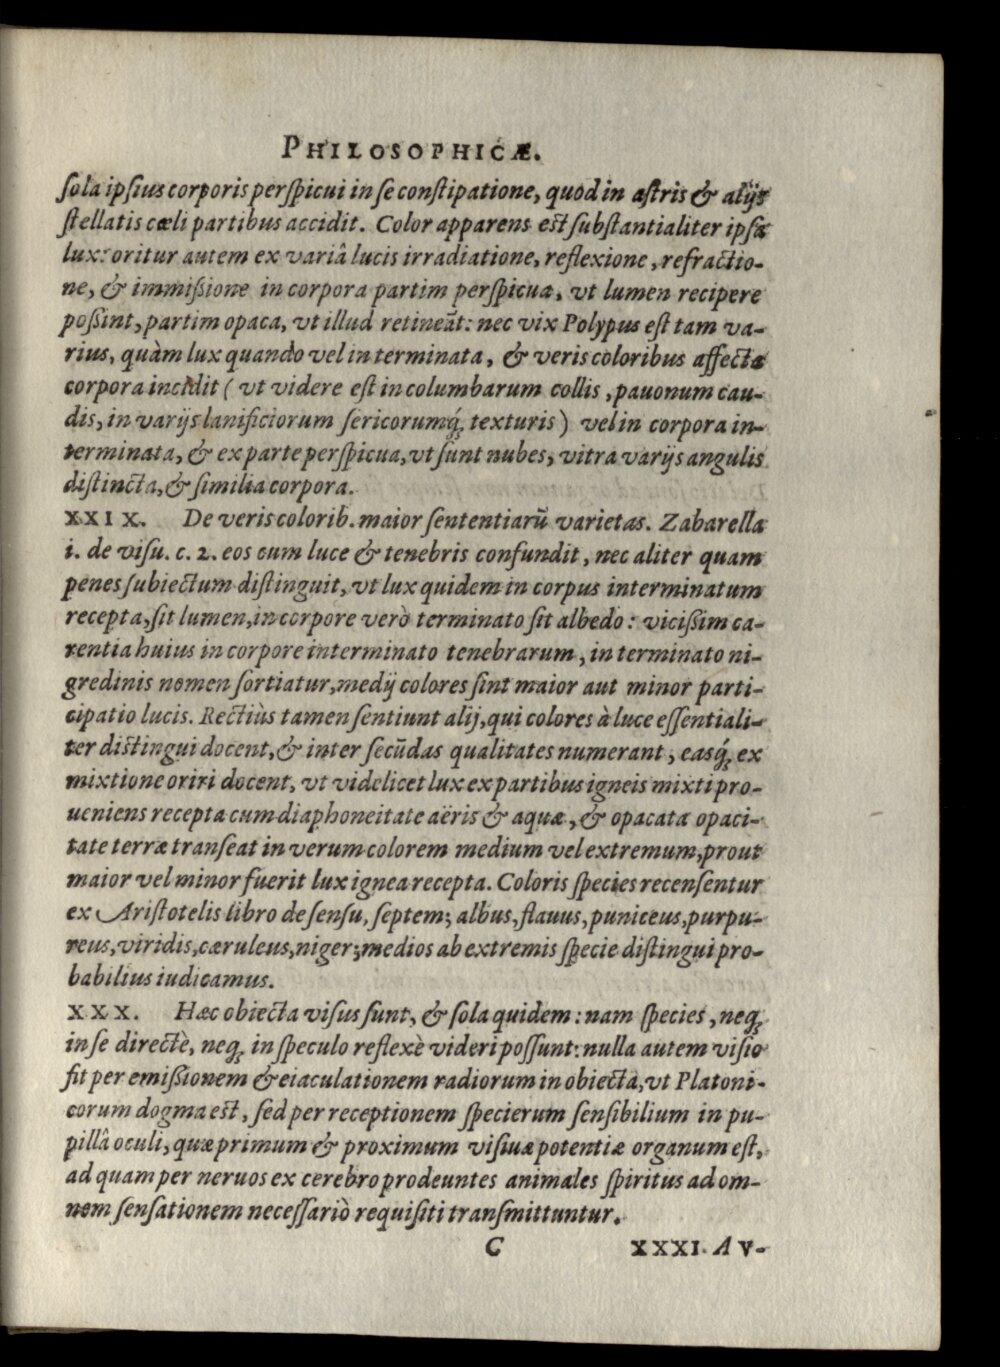 PHILOSOPHICÆ.
ſola ipſius corporis perſpicui in ſe conſtipatione, quod in aſtris & alijs
ſtellatis cæli partibus accidit. Color apparens eſt ſubſtantialiter ipſa
lux: oritur autem ex variâ lucis irradiatione, reflexione, refractio-
ne, & immißione in corpora partim perſpicua, vt lumen recipere
poßint, partim opaca, vt illud retineãt: nec vix Polypus eſt tam va-
rius, quàm lux quando vel in terminata, & veris coloribus affecta
corpora incidit ( vt videre eſt in columbarum collis, pauonum cau-
dis, in varijs lanificiorum ſericorumq́; texturis) vel in corpora in-
terminata, & ex parte perſpicua, vt ſunt nubes, vitra varijs angulis
diſtincta, & ſimilia corpora.
XXIX. De veris colorib. maior ſententiarũ varietas. Zabarella
i. de viſu. c. 2. eos cum luce & tenebris confundit, nec aliter quam
penes ſubiectum diſtinguit, vt lux quidem in corpus interminatum
recepta, ſit lumen, in corpore verò terminato ſit albedo: vicißim ca-
rentia huius in corpore interminato tenebrarum, in terminato ni-
gredinis nomen ſortiatur, medij colores ſint maior aut minor parti-
cipatio lucis. Rectiùs tamen ſentiunt alij, qui colores à luce eſſentiali-
ter diſtingui docent, & inter ſecũdas qualitates numerant, easq́; ex
mixtione oriri docent, vt videlicet lux ex partibus igneis mixti pro-
ueniens recepta cum diaphoneitate aëris & aquæ, & opacata opaci-
tate terræ tranſeat in verum colorem medium vel extremum, prout
maior vel minor fuerit lux ignea recepta. Coloris ſpecies recenſentur
ex Ariſtotelis libro de ſenſu, ſeptem; albus, flauus, puniceus, purpu-
reus, viridis, cæruleus, niger; medios ab extremis ſpecie diſtingui pro-
babilius iudicamus.
XXX. Hæc obiecta viſus ſunt, & ſola quidem: nam ſpecies, neq;
in ſe directè, neq; in ſpeculo reflexè videri poſſunt: nulla autem viſio
fit per emißionem & eiaculationem radiorum in obiecta, vt Platoni-
corum dogma eſt, ſed per receptionem ſpecierum ſenſibilium in pu-
pillâ oculi, quæ primum & proximum viſiuæ potentiæ organum eſt,
ad quam per neruos ex cerebro prodeuntes animales ſpiritus ad om-
nem ſenſationem neceſſariò requiſiti tranſmittuntur.
C XXXI. AV-